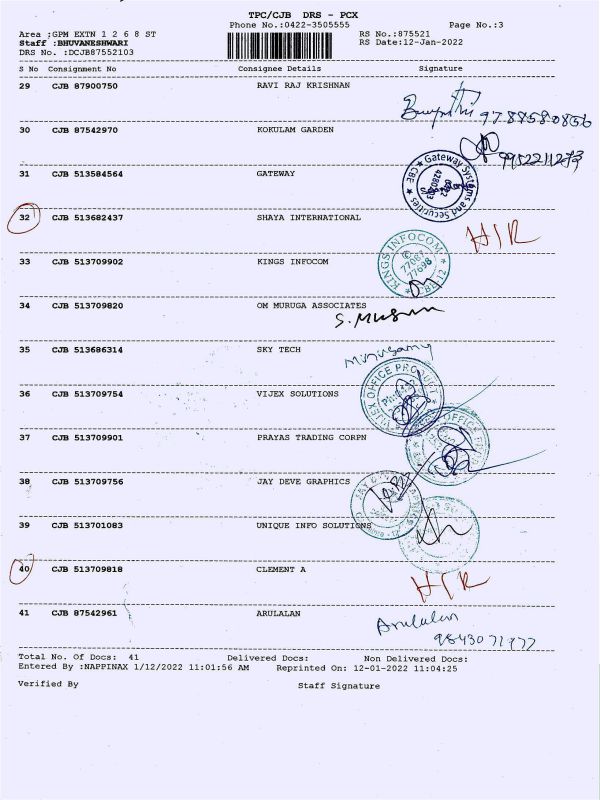 TPC/CJB DRS - PCX
Phone No.:0422-3505555 Page No.:3
Area ;GPM EXTN 1 2 6 8 ST RS No.:875521
Staff :BHUVANESHWARI RS Date:12-Jan-2022
DRS No. :DCJB87552103
S No Consignment No Consignee Details Signature
29 CJB 87900750 RAVI RAJ KRISHNAN
30 CJB 87542970 KOKULAM GARDEN
9952211273
31 CJB 513584564 GATEWAY
Gateway Systems and Securities ★ CBE ★
32 CJB 513682437 SHAYA INTERNATIONAL
H/R
33 CJB 513709902 KINGS INFOCOM
KINGS INFOCOM
77087
77698
34 CJB 513709820 OM MURUGA ASSOCIATES
35 CJB 513686314 SKY TECH
Murugamy
36 CJB 513709754 VIJEX SOLUTIONS
VIJEX OFFICE PRODUCT
37 CJB 513709901 PRAYAS TRADING CORPN
38 CJB 513709756 JAY DEVE GRAPHICS
39 CJB 513701083 UNIQUE INFO SOLUTIONS
40 CJB 513709818 CLEMENT A
H/R
41 CJB 87542961 ARULALAN
Arulalan
Total No. Of Docs: 41 Delivered Docs: Non Delivered Docs:
Entered By :NAPPINAX 1/12/2022 11:01:56 AM Reprinted On: 12-01-2022 11:04:25
Verified By Staff Signature